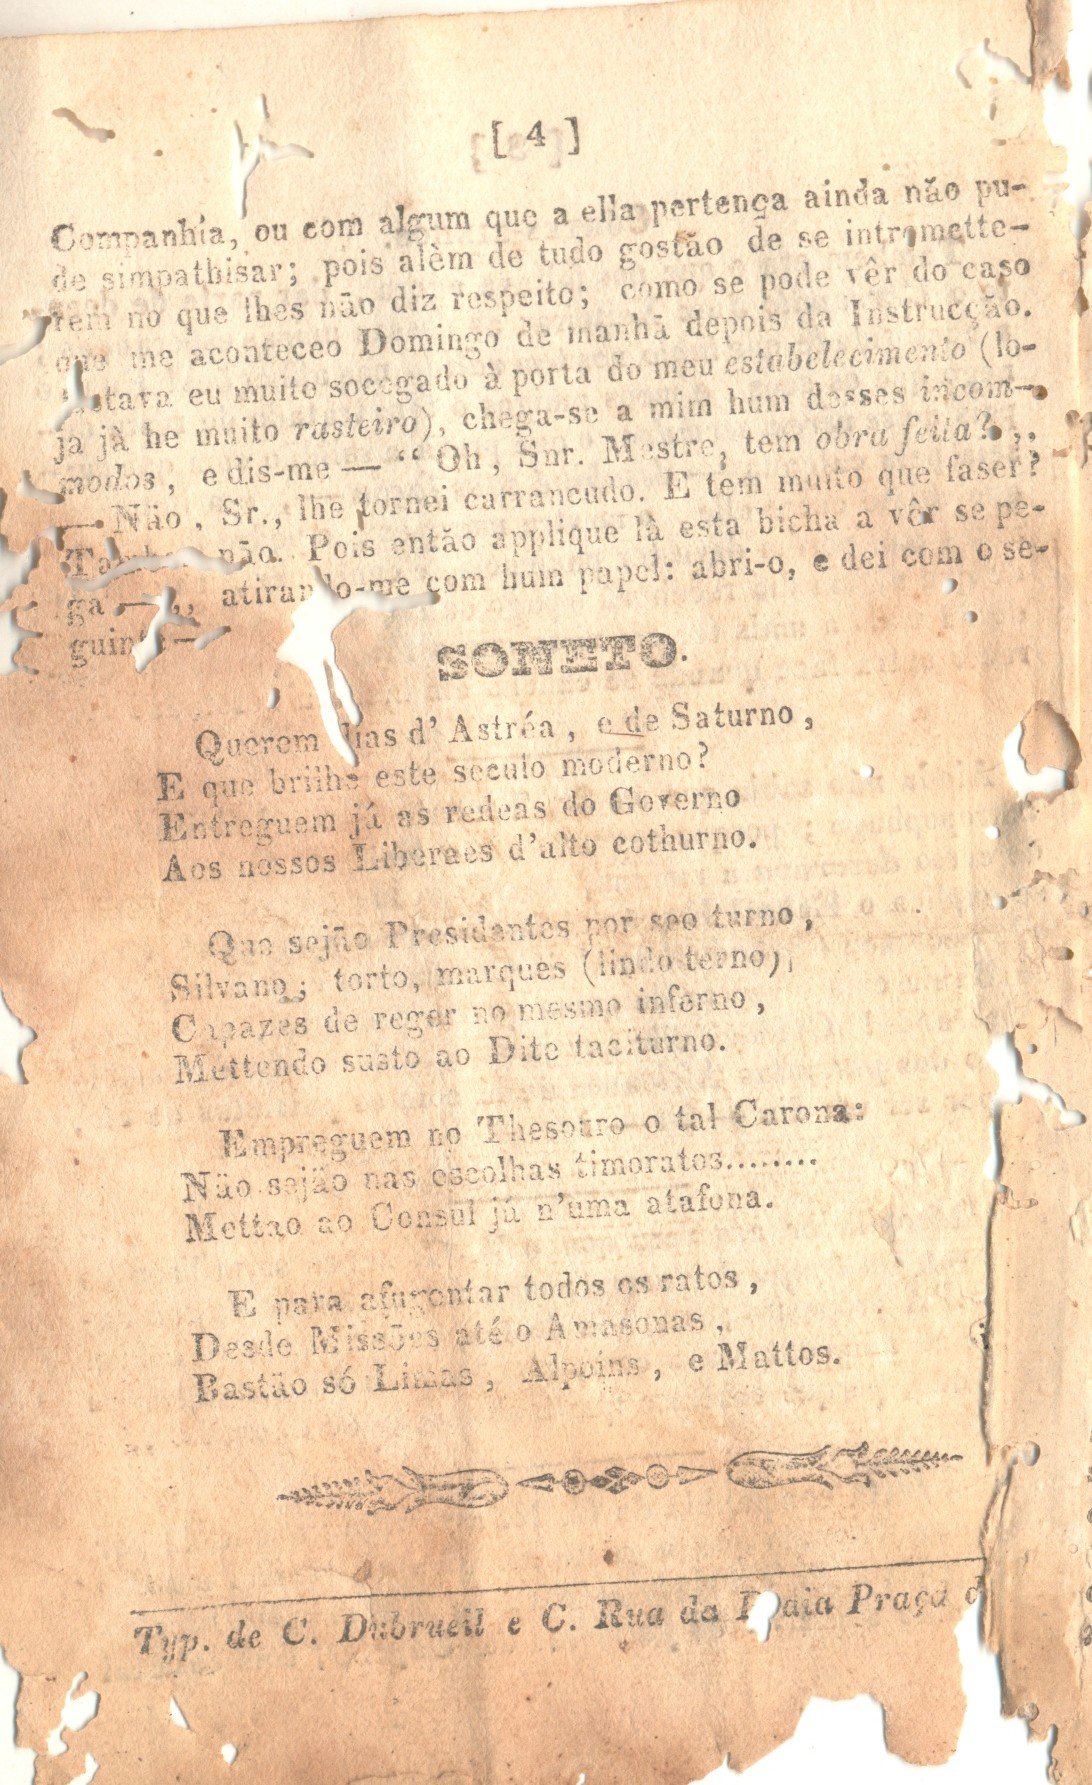 [ 4 ]
Companhia, ou com algum que a ella pertença ainda não pu-
de simpathisar; pois alèm de tudo gostão de se intromette-
rem no que lhes não diz respeito; como se pode vêr do caso
que me aconteceo Domingo de manhã depois da Instrucção.
Estava eu muito socegado à porta do meu estabelecimento (lo-
ja jà he muito rasteiro), chega-se a mim hum desses incom-
modos, e dis-me — “ Oh, Snr. Mestre, tem obra feita? ,,
— Não, Sr., lhe tornei carrancudo. E tem muito que faser?
não. Pois então applique là esta bicha a vêr se pe-
ga — ,, atirando-me com hum papel: abri-o, e dei com o se-
guinte —
SONETO.
Querem dias d' Astréa, e de Saturno,
E que brilhe este seculo moderno?
Entreguem já as redeas do Governo
Aos nossos Liberaes d'alto cothurno.
Que sejão Presidentes por seo turno,
Silvano; torto, marques (lindo terno),
Capazes de reger no mesmo inferno,
Mettendo susto ao Dite taciturno.
Empreguem no Thesouro o tal Carona:
Não sejão nas escolhas timoratos.........
Mettao ao Consul já n'uma atafona.
E para afugentar todos os ratos,
Desde Missões até o Amasonas,
Bastão só Limas, Alpoins, e Mattos.
Typ. de C. Dubrueil e C. Rua da Praça